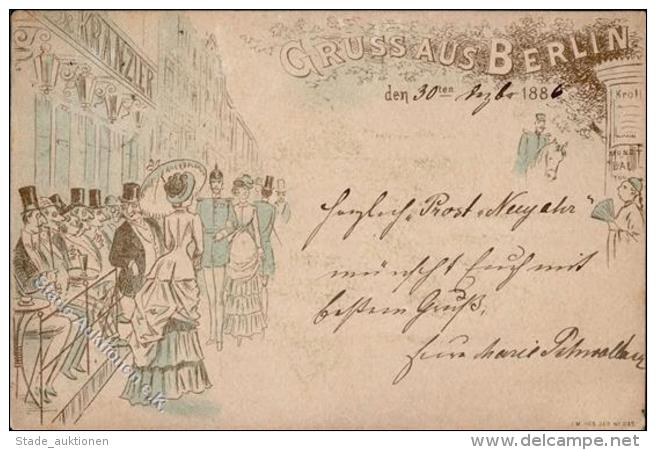 KRANZLER
GRUSS AUS BERLIN
den 30ten Dezbr 1886
Kroll
BAL
herzlich „Prost-Neujahr“
wünscht Euch mit
bestem Gruß,
Eure Marie
Stade-Auktionen.K
Stade_auktionen
www.delcampe.net